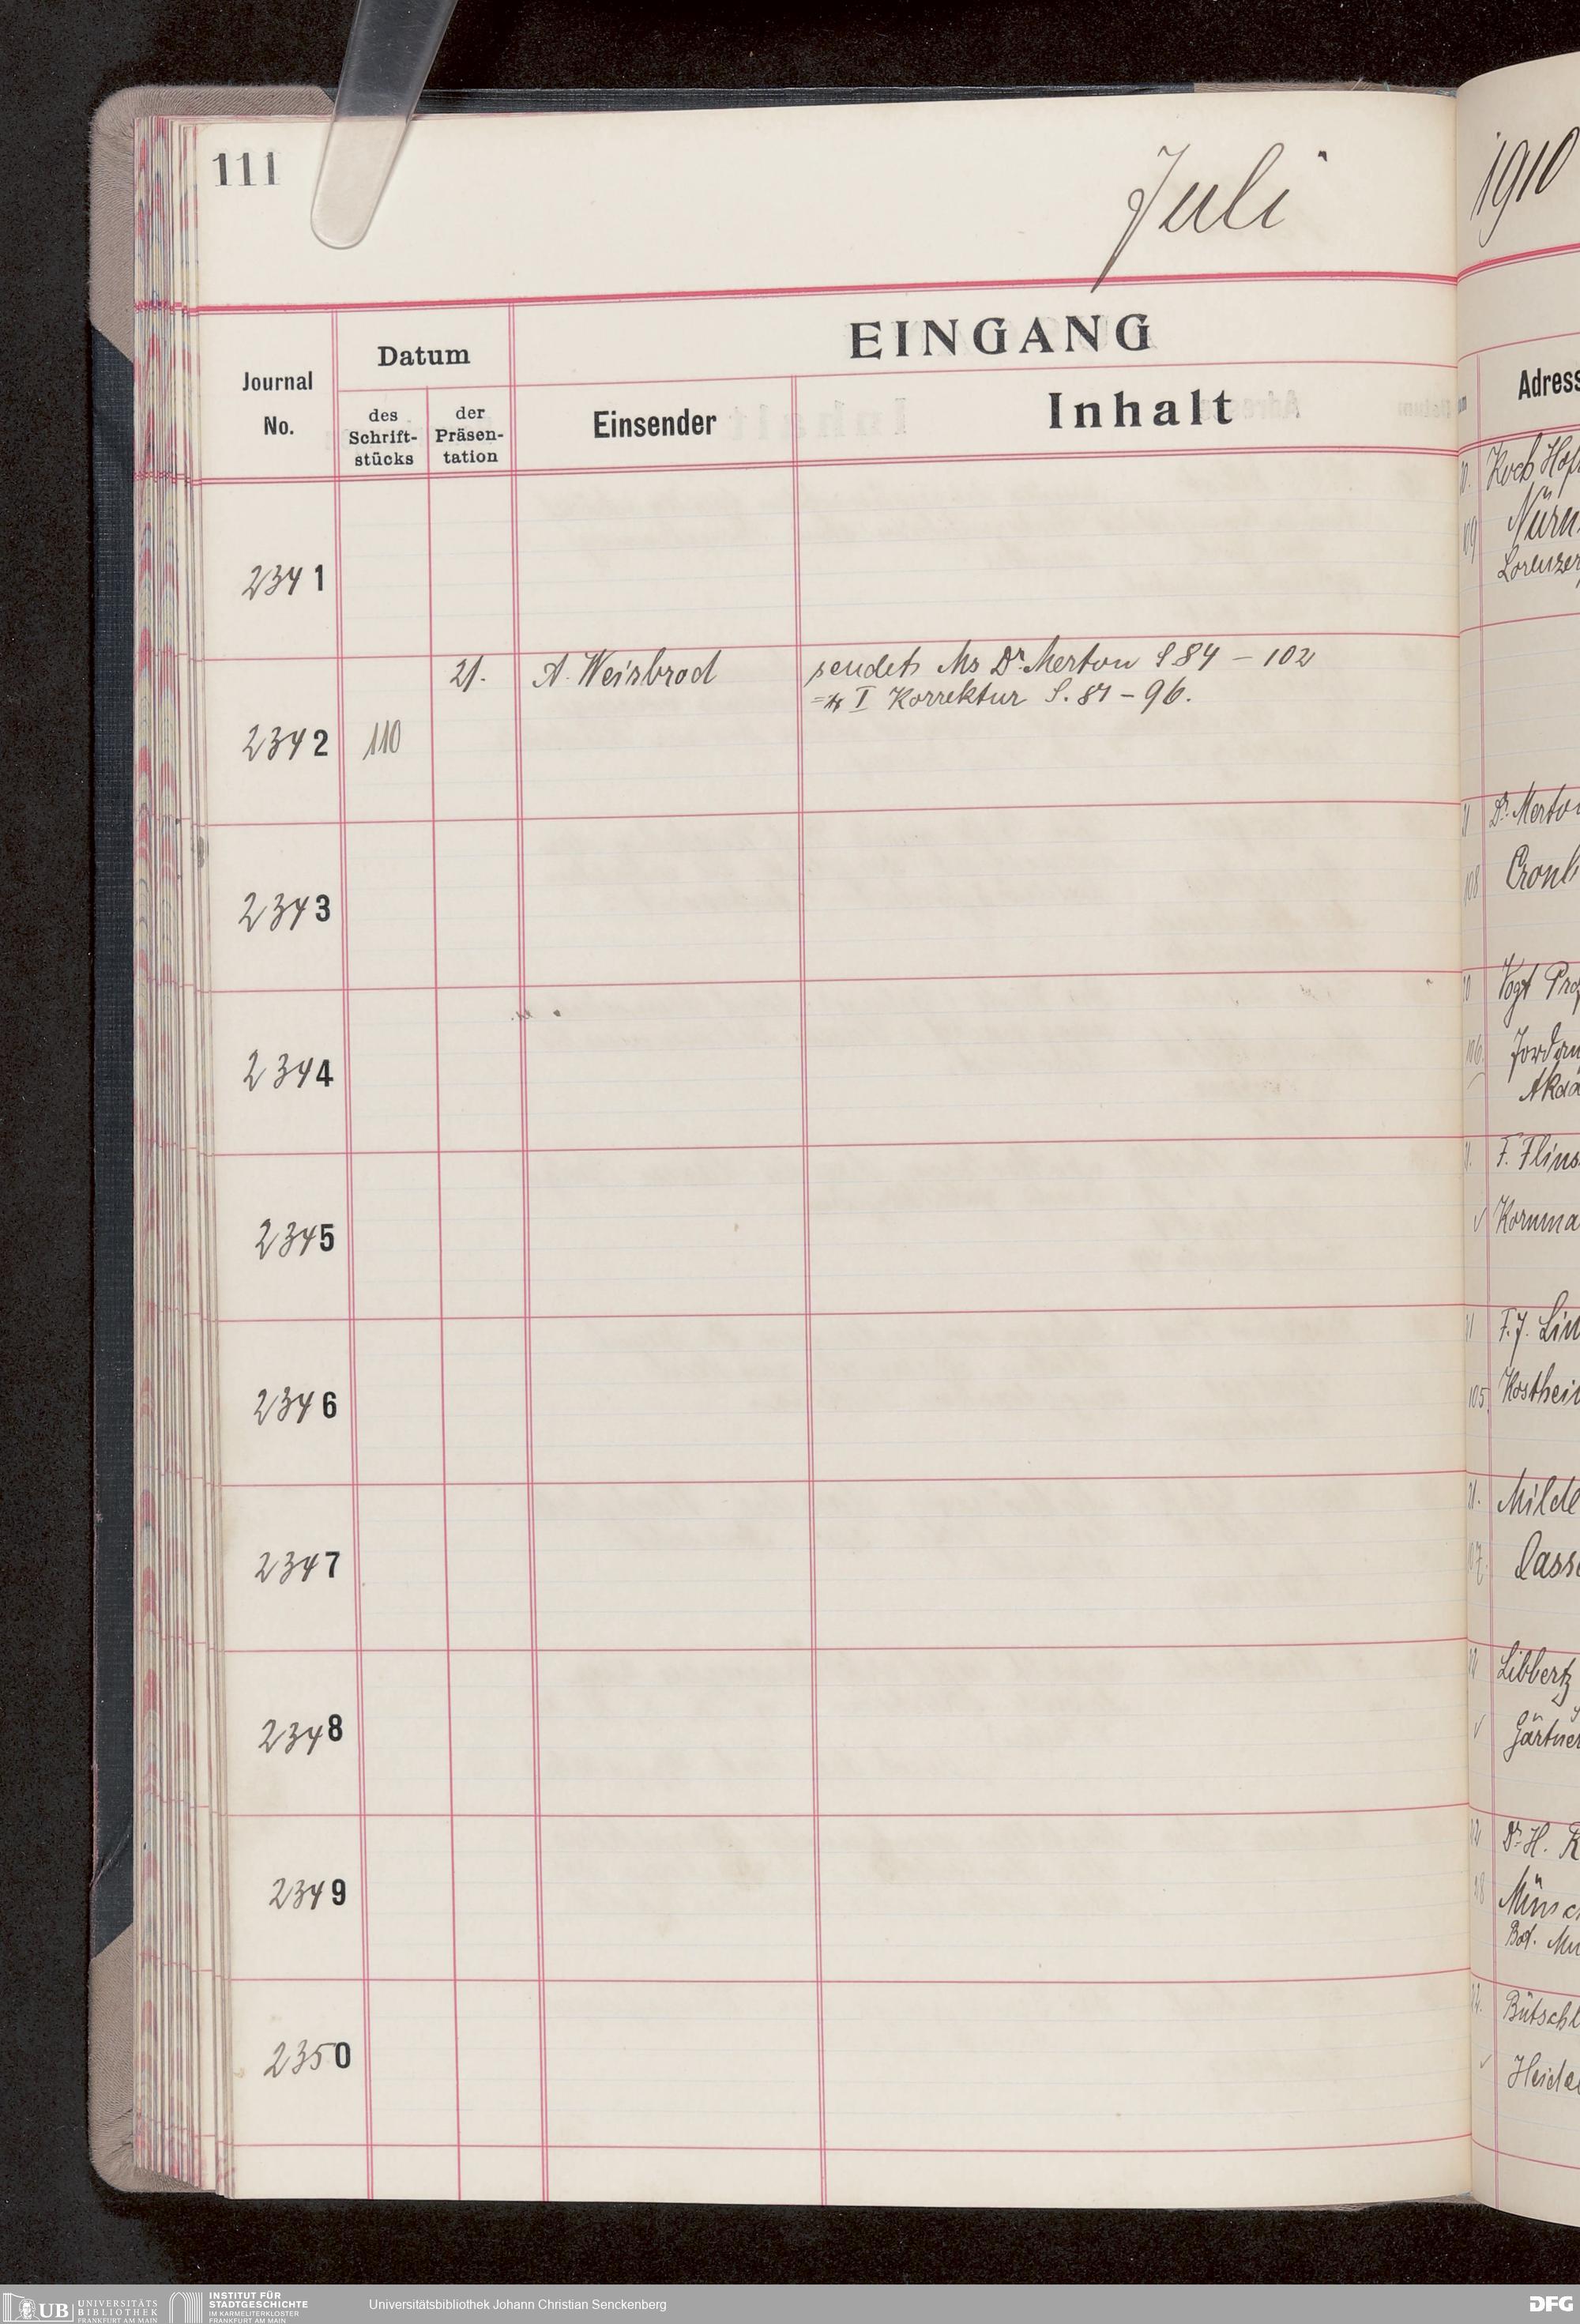 111
Juli
1910
EINGANG
Datum
Journal
No.
des
Schrift-
stücks
der
Präsen-
tation
Einsender
Inhalt
Adress
2341
2342
110
21.
A. Weisbrod
sendet Ms Dr. Merton S 84 – 102
I Korrektur S. 81 – 96.
2343
2344
2345
2346
2347
2348
2349
2350
Koch Hof
Nürn
Lorenzer
Dr. Merto
108
Cronb
Vogt Pro
106
Jordan
Akad
F. Flins
Kornma
F. J. Lin
105
Kosthei
21.
Milde
107.
Cass
Libbertz
Gärtner
Dr. H. K
Münc
Bot. Mu
Bütschl
Heidel
UB UNIVERSITÄTS
BIBLIOTHEK
FRANKFURT AM MAIN
INSTITUT FÜR
STADTGESCHICHTE
IM KARMELITERKLOSTER
FRANKFURT AM MAIN
Universitätsbibliothek Johann Christian Senckenberg
DFG